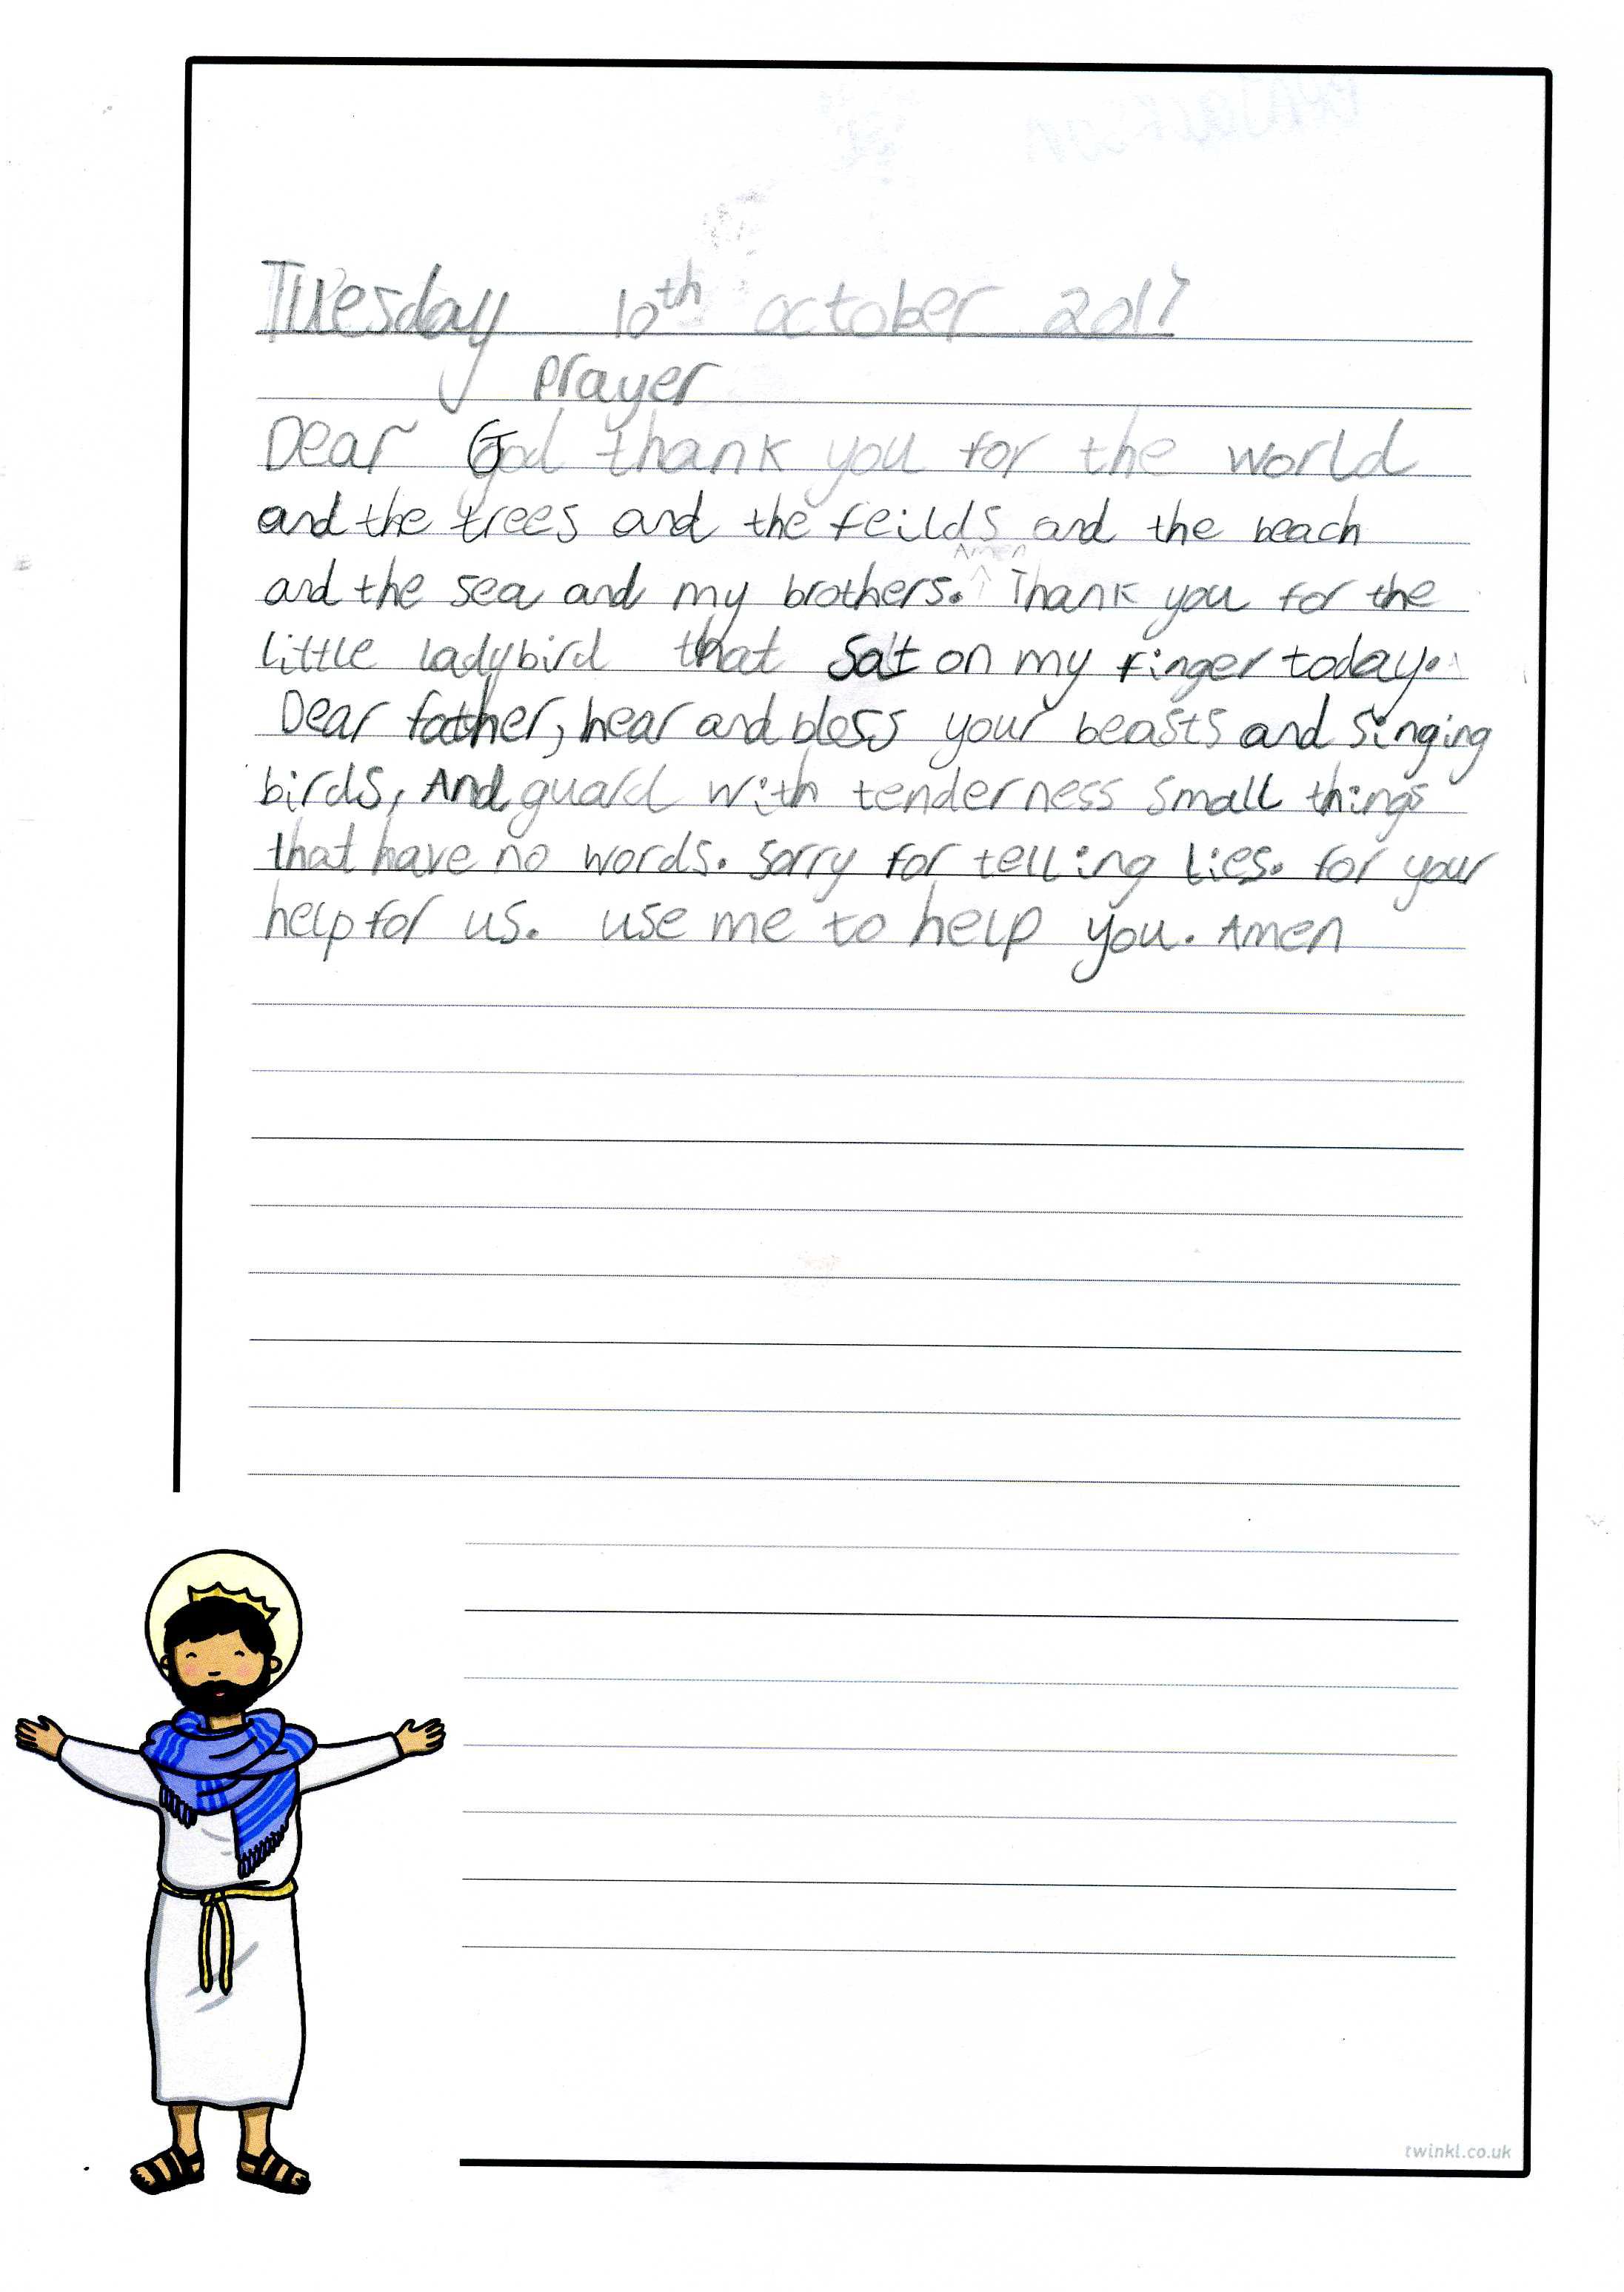 Tuesday 10th october 2017
prayer
Dear God thank you for the world
and the trees and the feilds and the beach
Amen
and the sea and my brothers. Thank you for the
little ladybird that sat on my finger today.
Dear father, hear and bless your beasts and singing
birds, And guard with tenderness small things
that have no words. sorry for telling lies. for your
help for us. use me to help you. Amen
twinkl.co.uk